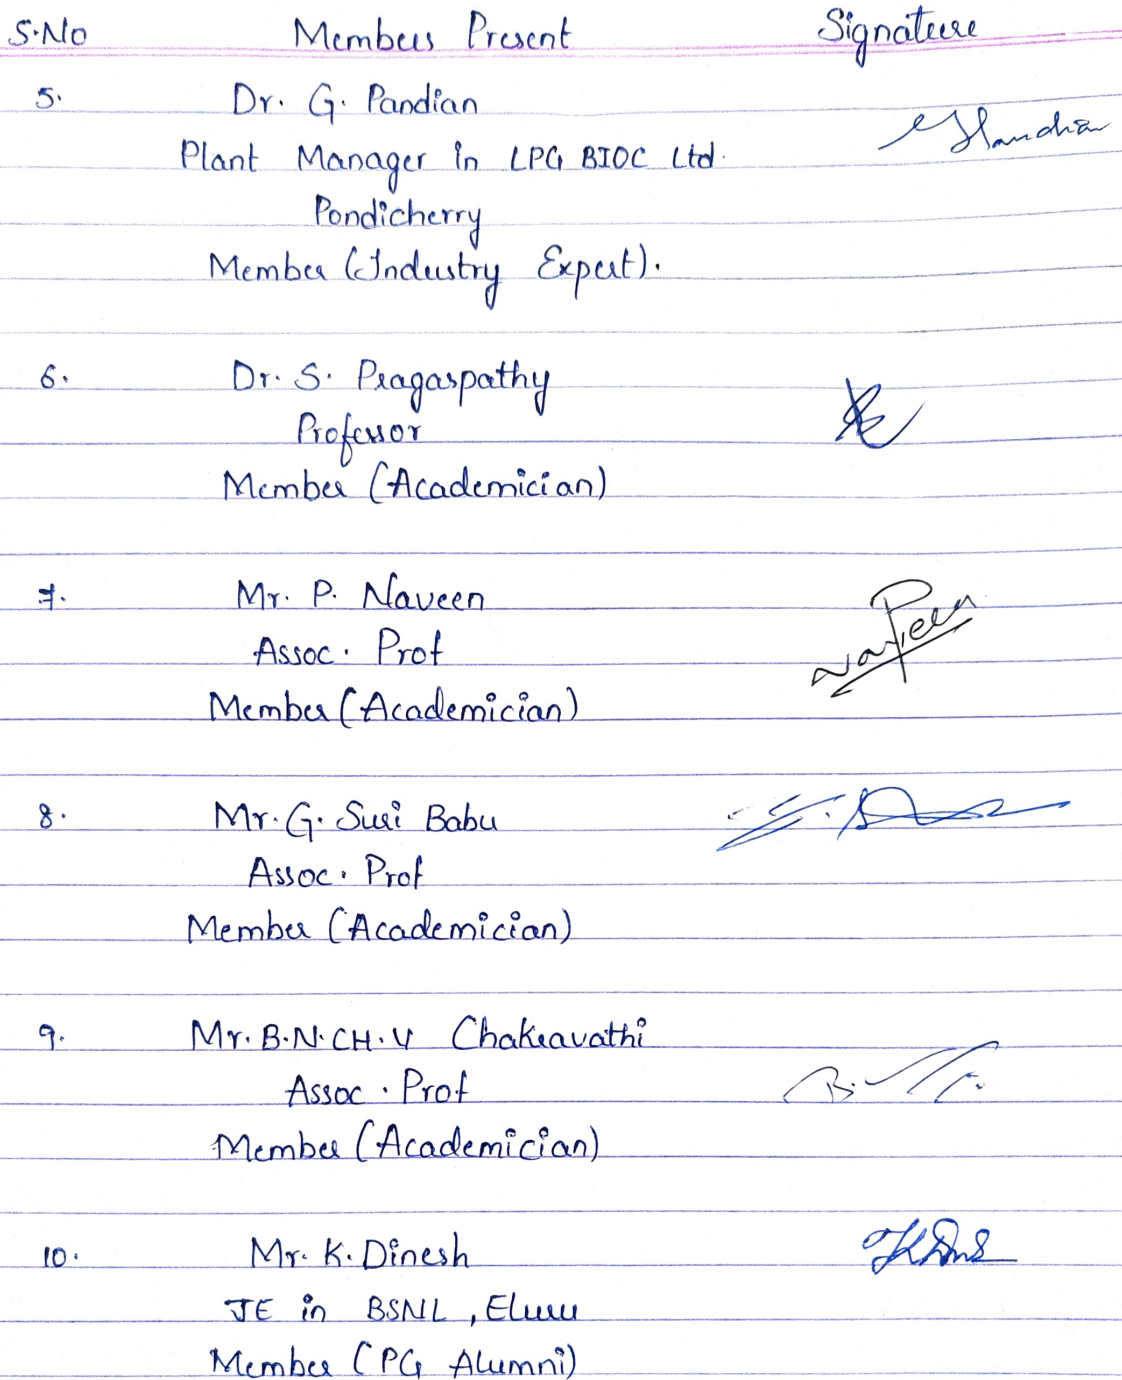 S.No Members Present Signature
5. Dr. G. Pandian
Plant Manager in LPG BIOC Ltd.
Pondicherry
Member (Industry Expert).
6. Dr. S. Pragaspathy
Professor
Member (Academician)
7. Mr. P. Naveen Naveen
Assoc. Prof
Member (Academician)
8. Mr. G. Suri Babu
Assoc. Prof
Member (Academician)
9. Mr. B.N.CH.V Chakravathi
Assoc. Prof
Member (Academician)
10. Mr. K. Dinesh
JE in BSNL, Eluru
Member (PG Alumni)